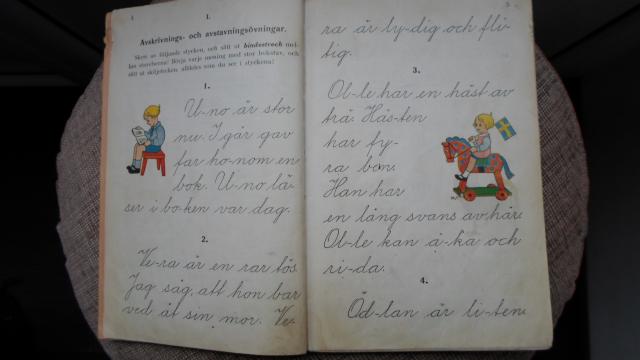 1 1.
Avskrivnings- och avstavningsövningar.
Skriv av följande stycken, och sätt ut bindestreck mel-
lan stavelserna! Börja varje mening med stor bokstav, och
sätt ut skiljetecken alldeles som du ser i styckena!
1.
U-no är stor
nu. I går gav
far ho-nom en
bok. U-no lä-
ser i bo-ken var dag.
2.
Ve-ra är en rar tös.
Jag såg, att hon bar
ved åt sin mor. Ve-
3
ra är ly-dig och fli-
tig.
3.
Ol-le har en häst av
trä. Häs-ten
har fy-
ra ben.
Han har
en lång svans av hår.
Ol-le kan å-ka och
ri-da.
4.
Öd-lan är li-ten.